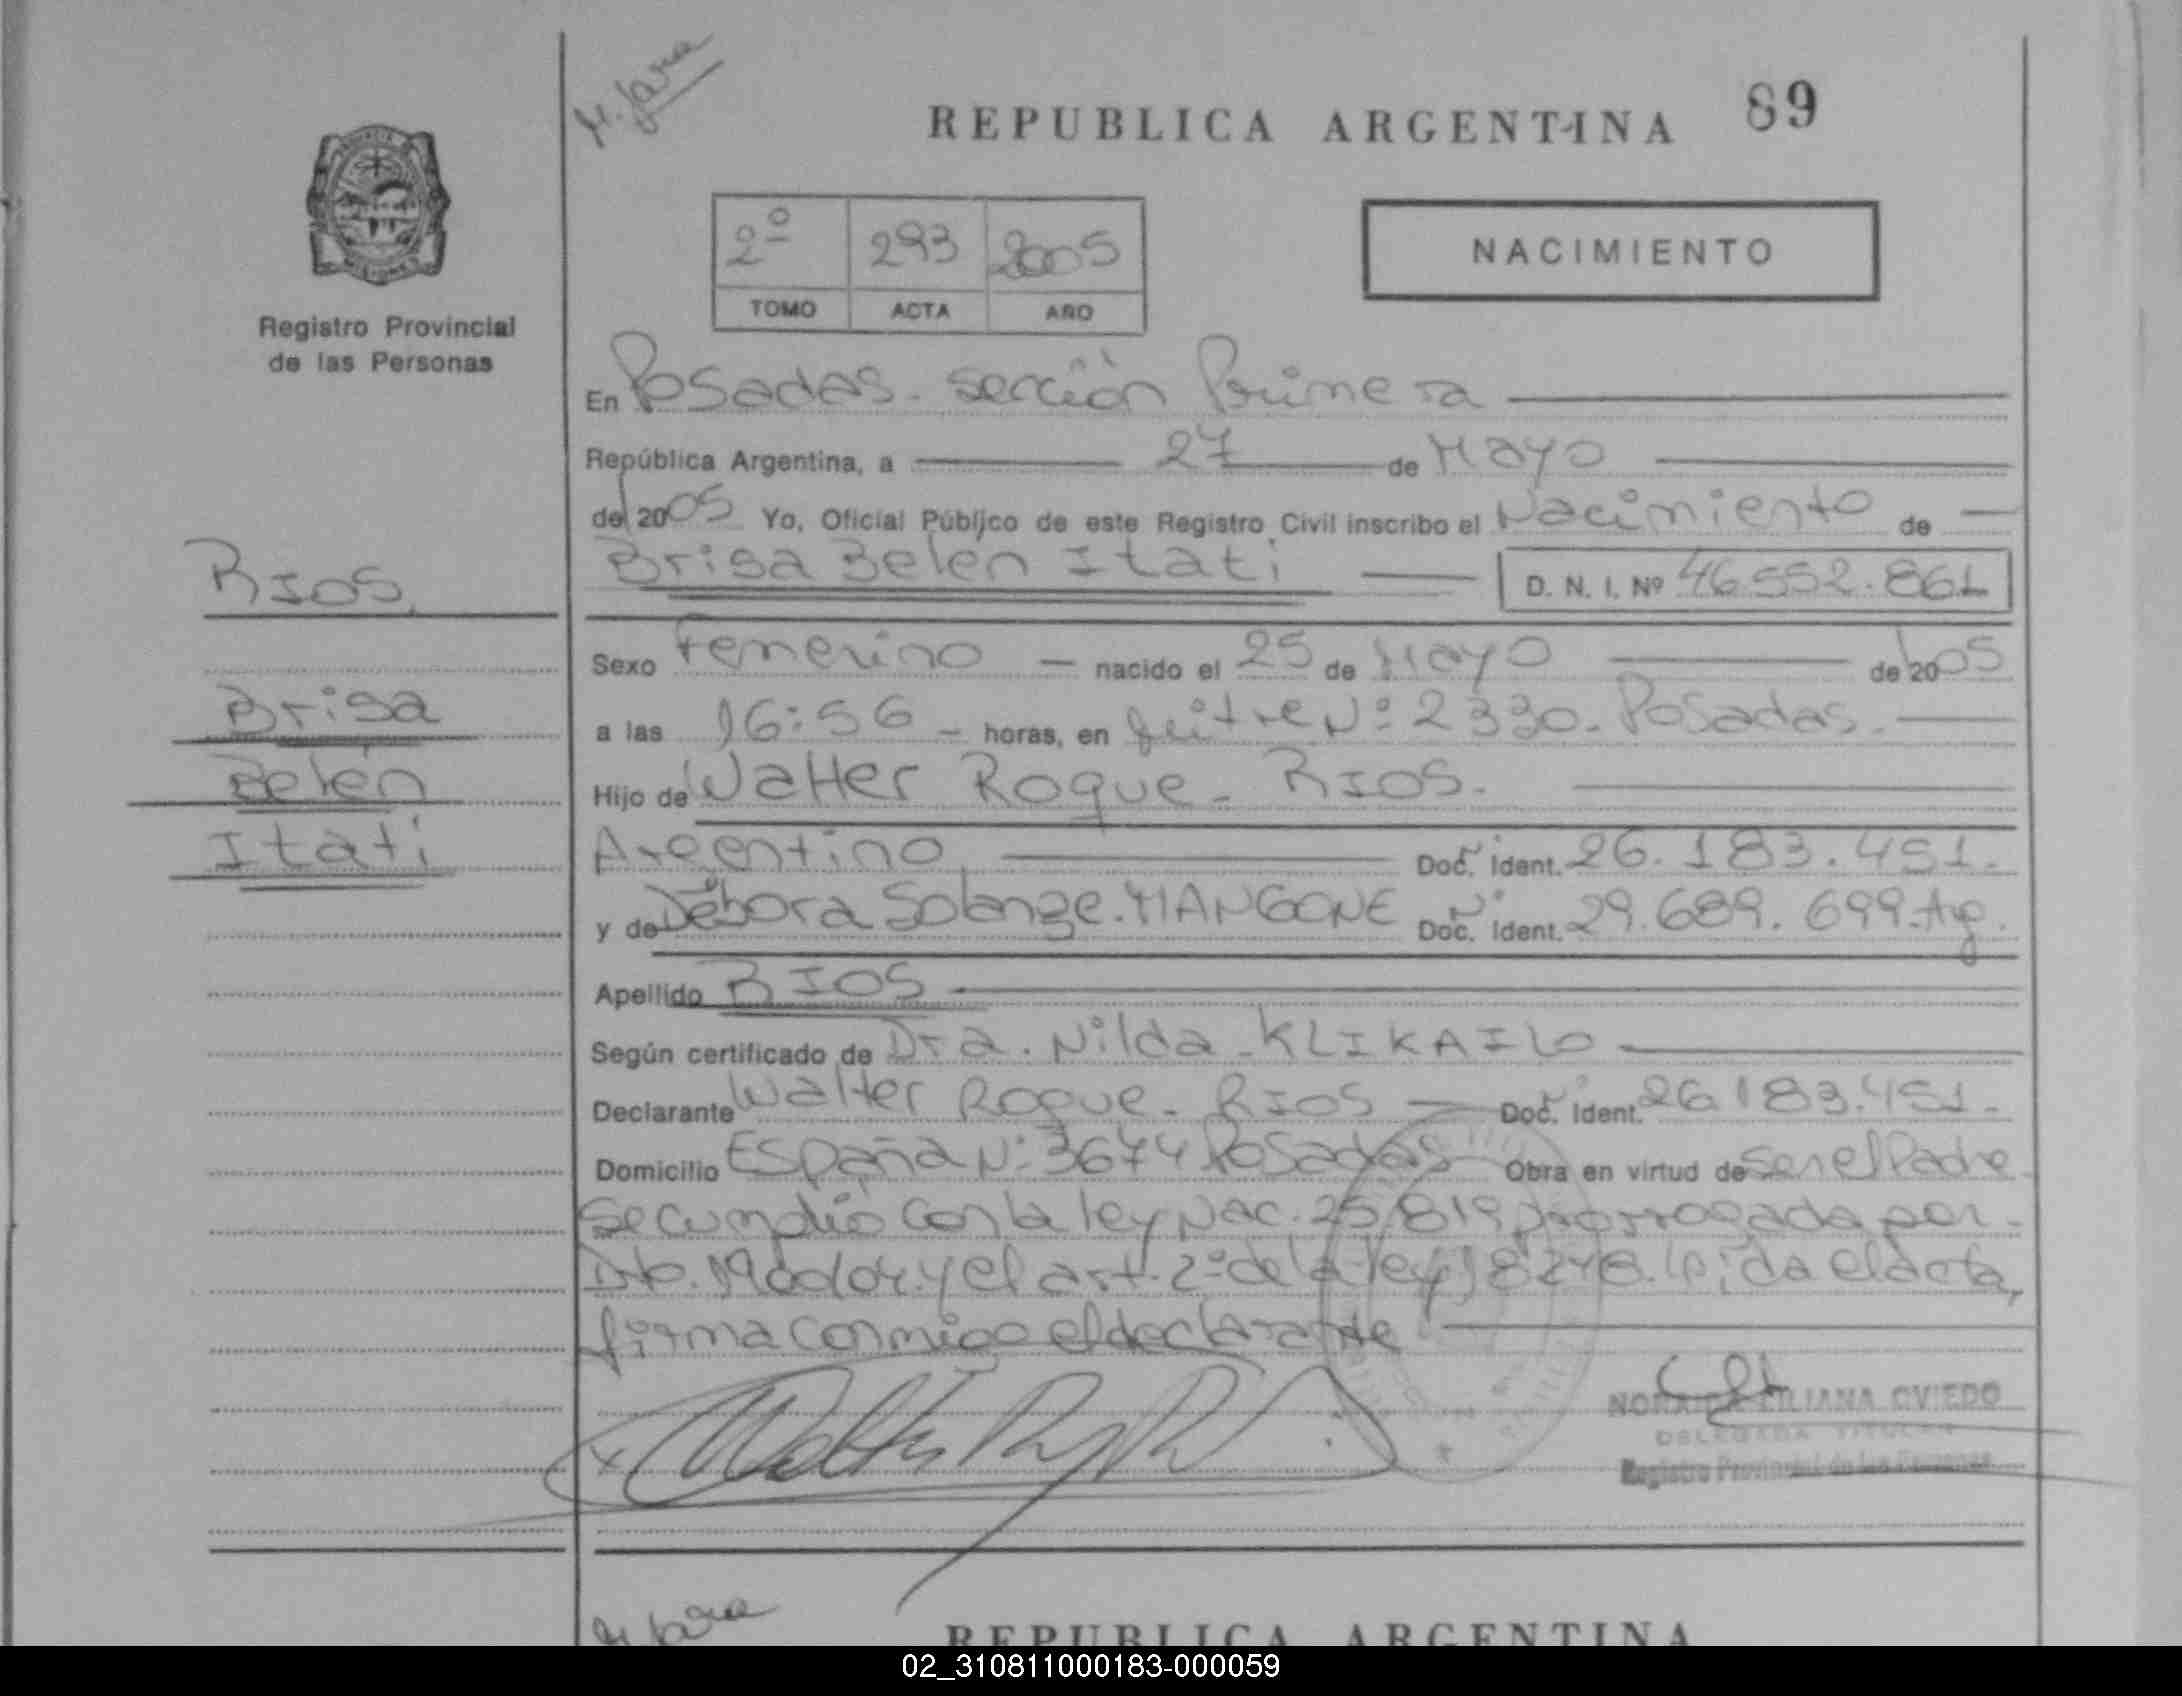 M. Jara
REPUBLICA ARGENTINA 89
2º 293 2005
TOMO ACTA AÑO
NACIMIENTO
Registro Provincial
de las Personas
En Posadas. sección Primera
República Argentina, a 27 de Mayo
del 2005 Yo, Oficial Público de este Registro Civil inscribo el Nacimiento de
Brisa Belen Itati D. N. I. Nº 46.552.861
RIOS.
Brisa
Belén
Itati
Sexo Femenino nacido el 25 de Mayo de 2005
a las 16:56 horas, en Nº 2330. Posadas.
Hijo de Walter Roque - RIOS.
Argentino Doc. Ident. 26.183.451.
y de Débora Solange. MANGONE Doc. Ident. 29.689.699. Arg.
Apellido RIOS
Según certificado de Dra. Nilda - KLIKAILO
Declarante Walter Roque - RIOS Doc. Ident. 26.183.451.
Domicilio España Nº 3674 Posadas Obra en virtud de ser el Padre
Se cumplió con la ley Nac. 25.819 prorrogada por
Dto. y el art. 2º de la ley 18248. leída el acta,
firma conmigo el declarante
LILIANA OVIEDO
DELEGADA TITULAR
Registro Provincial de las Personas
M. Jara
REPUBLICA ARGENTINA
02_310811000183-000059